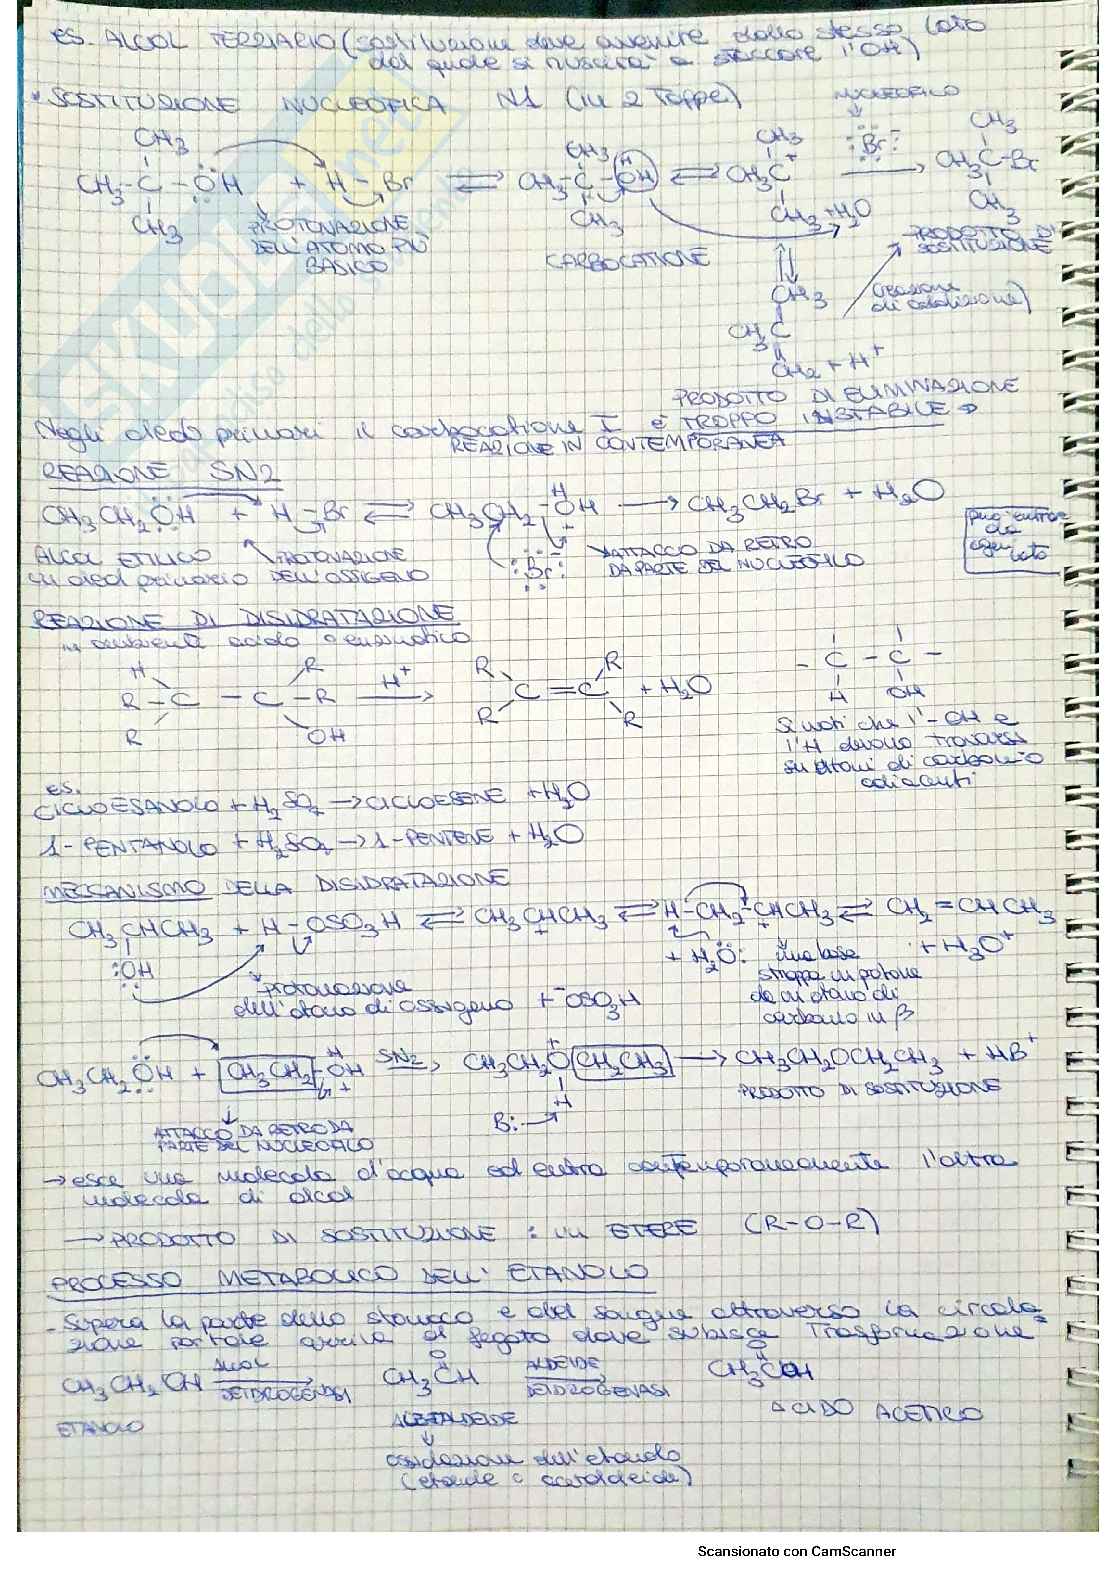 es. ALCOL TERZIARIO (sostituzione deve avvenire dallo stesso lato
dal quale si riuscirà a staccare l'OH)
• SOSTITUZIONE NUCLEOFICA N1 (in 2 Tappe)
NUCLEOFILO
CH3 CH3 CH3 :Br:⁻ CH3
CH3-C-OH + H-Br ⇌ CH3-C-OH ⇌ CH3C⁺ → CH3C-Br
CH3 CH3 CH3 + H2O CH3
PROTONAZIONE
DELL'ATOMO PIÙ
BASICO
CARBOCATIONE
PRODOTTO DI
SOSTITUZIONE
(reazione
di addizione)
CH3
CH3C
CH2 + H⁺
PRODOTTO DI ELIMINAZIONE
Negli alcoli primari il carbocatione I è TROPPO INSTABILE →
REAZIONE IN CONTEMPORANEA
REAZIONE SN2
CH3CH2OH + H-Br ⇌ CH3CH2-OH → CH3CH2Br + H2O
ALCOL ETILICO
un alcol primario
PROTONAZIONE
DELL'OSSIGENO
:Br:⁻
ATTACCO DA RETRO
DA PARTE DEL NUCLEOFILO
può entrare
da
ogni
lato
REAZIONE DI DISIDRATAZIONE
in ambiente acido o enzimatico
H R R R
R-C-C-R H⁺→ C=C + H2O
R OH R R
- C - C -
H OH
Si noti che l'-OH e
l'H devono trovarsi
su atomi di carbonio
adiacenti
es.
CICLOESANOLO + H2SO4 → CICLOESENE + H2O
1-PENTANOLO + H2SO4 → 1-PENTENE + H2O
MECCANISMO DELLA DISIDRATAZIONE
CH3CHCH3 + H-OSO3H ⇌ CH3CHCH3 ⇌ H-CH2-CHCH3 ⇌ CH2=CHCH3
:OH + + + H3O⁺
+ H2O:
una base
strappa un protone
da un atomo di
carbonio in β
protonazione
dell'atomo di ossigeno
+ ⁻OSO3H
CH3CH2OH + CH3CH2-OH SN2→ CH3CH2O CH2CH3 → CH3CH2OCH2CH3 + HB⁺
H
B:
PRODOTTO DI SOSTITUZIONE
ATTACCO DA RETRO DA
PARTE DEL NUCLEOFILO
→ esce una molecola d'acqua ed entra contemporaneamente l'altra
molecola di alcol
→ PRODOTTO DI SOSTITUZIONE: un ETERE (R-O-R)
PROCESSO METABOLICO DELL'ETANOLO
- Supera la parete dello stomaco e dal sangue attraverso la circola=
zione portale arriva al fegato dove subisce Trasformazione
CH3CH2OH ALCOL DEIDROGENASI → CH3CH ALDEIDE DEIDROGENASI → CH3COH
O O
ETANOLO
ACETALDEIDE
ACIDO ACETICO
ossidazione dell'etanolo
(etanale o acetaldeide)
Scansionato con CamScanner